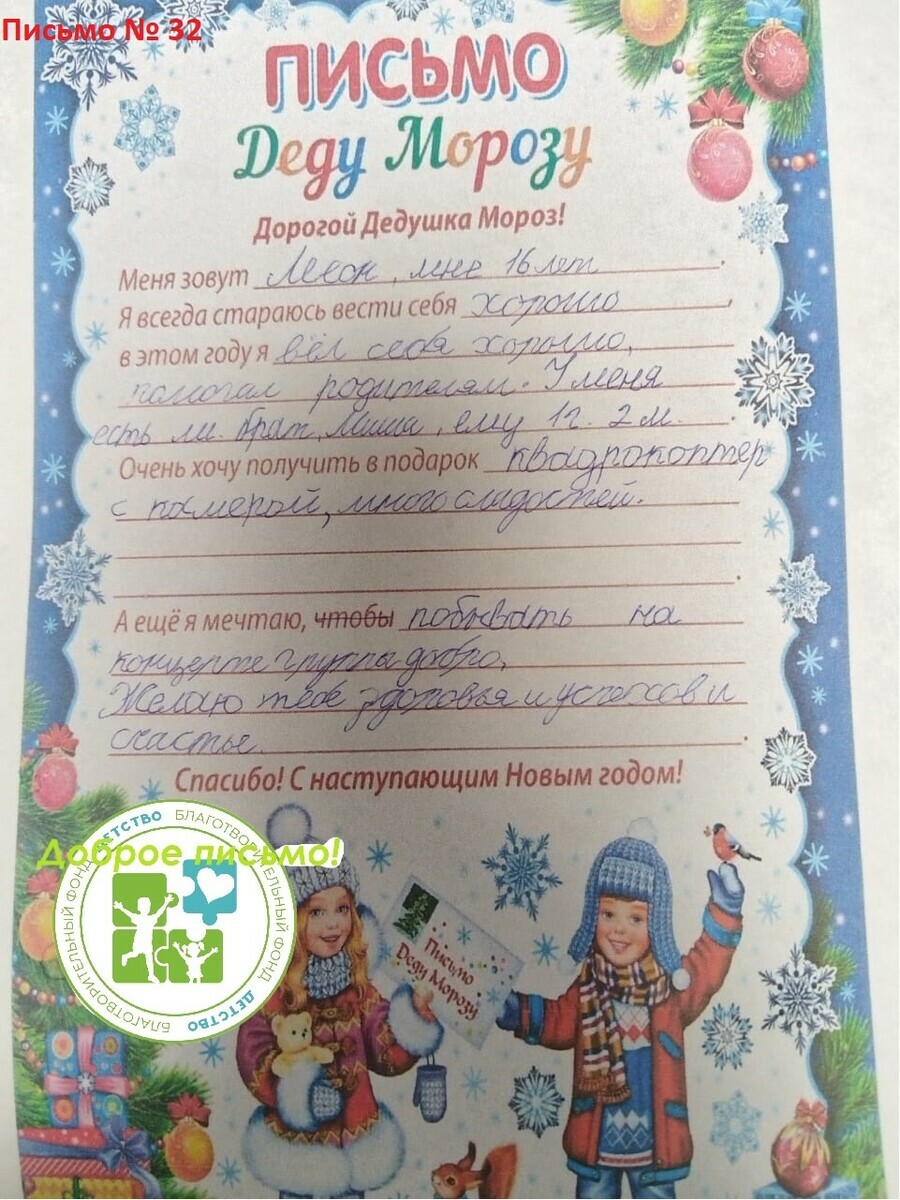 Письмо № 32
ПИСЬМО
Деду Морозу
Дорогой Дедушка Мороз!
Меня зовут Леон, мне 16 лет.
Я всегда стараюсь вести себя хорошо,
в этом году я вёл себя хорошо,
помогал родителям. У меня
есть мл. брат, Миша, ему 1г. 2 м.
Очень хочу получить в подарок квадрокоптер
с камерой, много сладостей.
А ещё я мечтаю, чтобы побывать на
концерте группы добро,
Желаю тебе здоровья и успехов и
счастье.
Спасибо! С наступающим Новым годом!
Доброе письмо!
БЛАГОТВОРИТЕЛЬНЫЙ ФОНД ДЕТСТВО
БЛАГОТВОРИТЕЛЬНЫЙ ФОНД ДЕТСТВО
Письмо
Деду Морозу